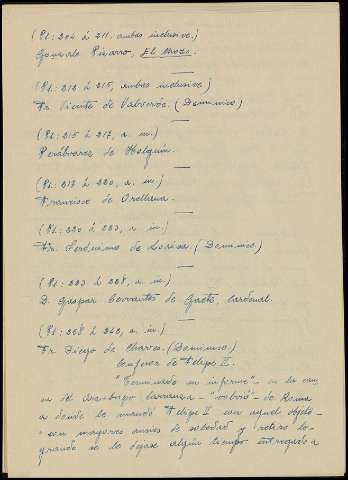 (Pl.: 204 á 211, ambos inclusive.)
Gonzalo Pizarro, El Mozo.
(Pl.: 212 á 215, ambos inclusive)
Fr. Vicente de Valverde. (Dominico)
(Pl.: 215 á 217, a. in.)
Perálvarez de Holguín.
(Pl.: 217 á 220, a. in.)
Francisco de Orellana.
(Pl.: 220 á 223, a. in.)
Fr. Jerónimo de Loaisa. (Dominico.)
(Pl.: 223 á 228, a. in.)
D. Gaspar Cervantes de Gaete, Cardenal.
(Pl.: á a. in.)
Fr. Diego de Chaves. (Dominico.)
Confesor de Felipe II.
"Terminado su informe" - en la cau
sa del Arzobispo Carranza - "volvió" - de Roma
a donde le mandó Felipe II con aquel objeto -
"con mayores ansias de soledad y retiro lo-
grando se le dejase algún tiempo entregado a